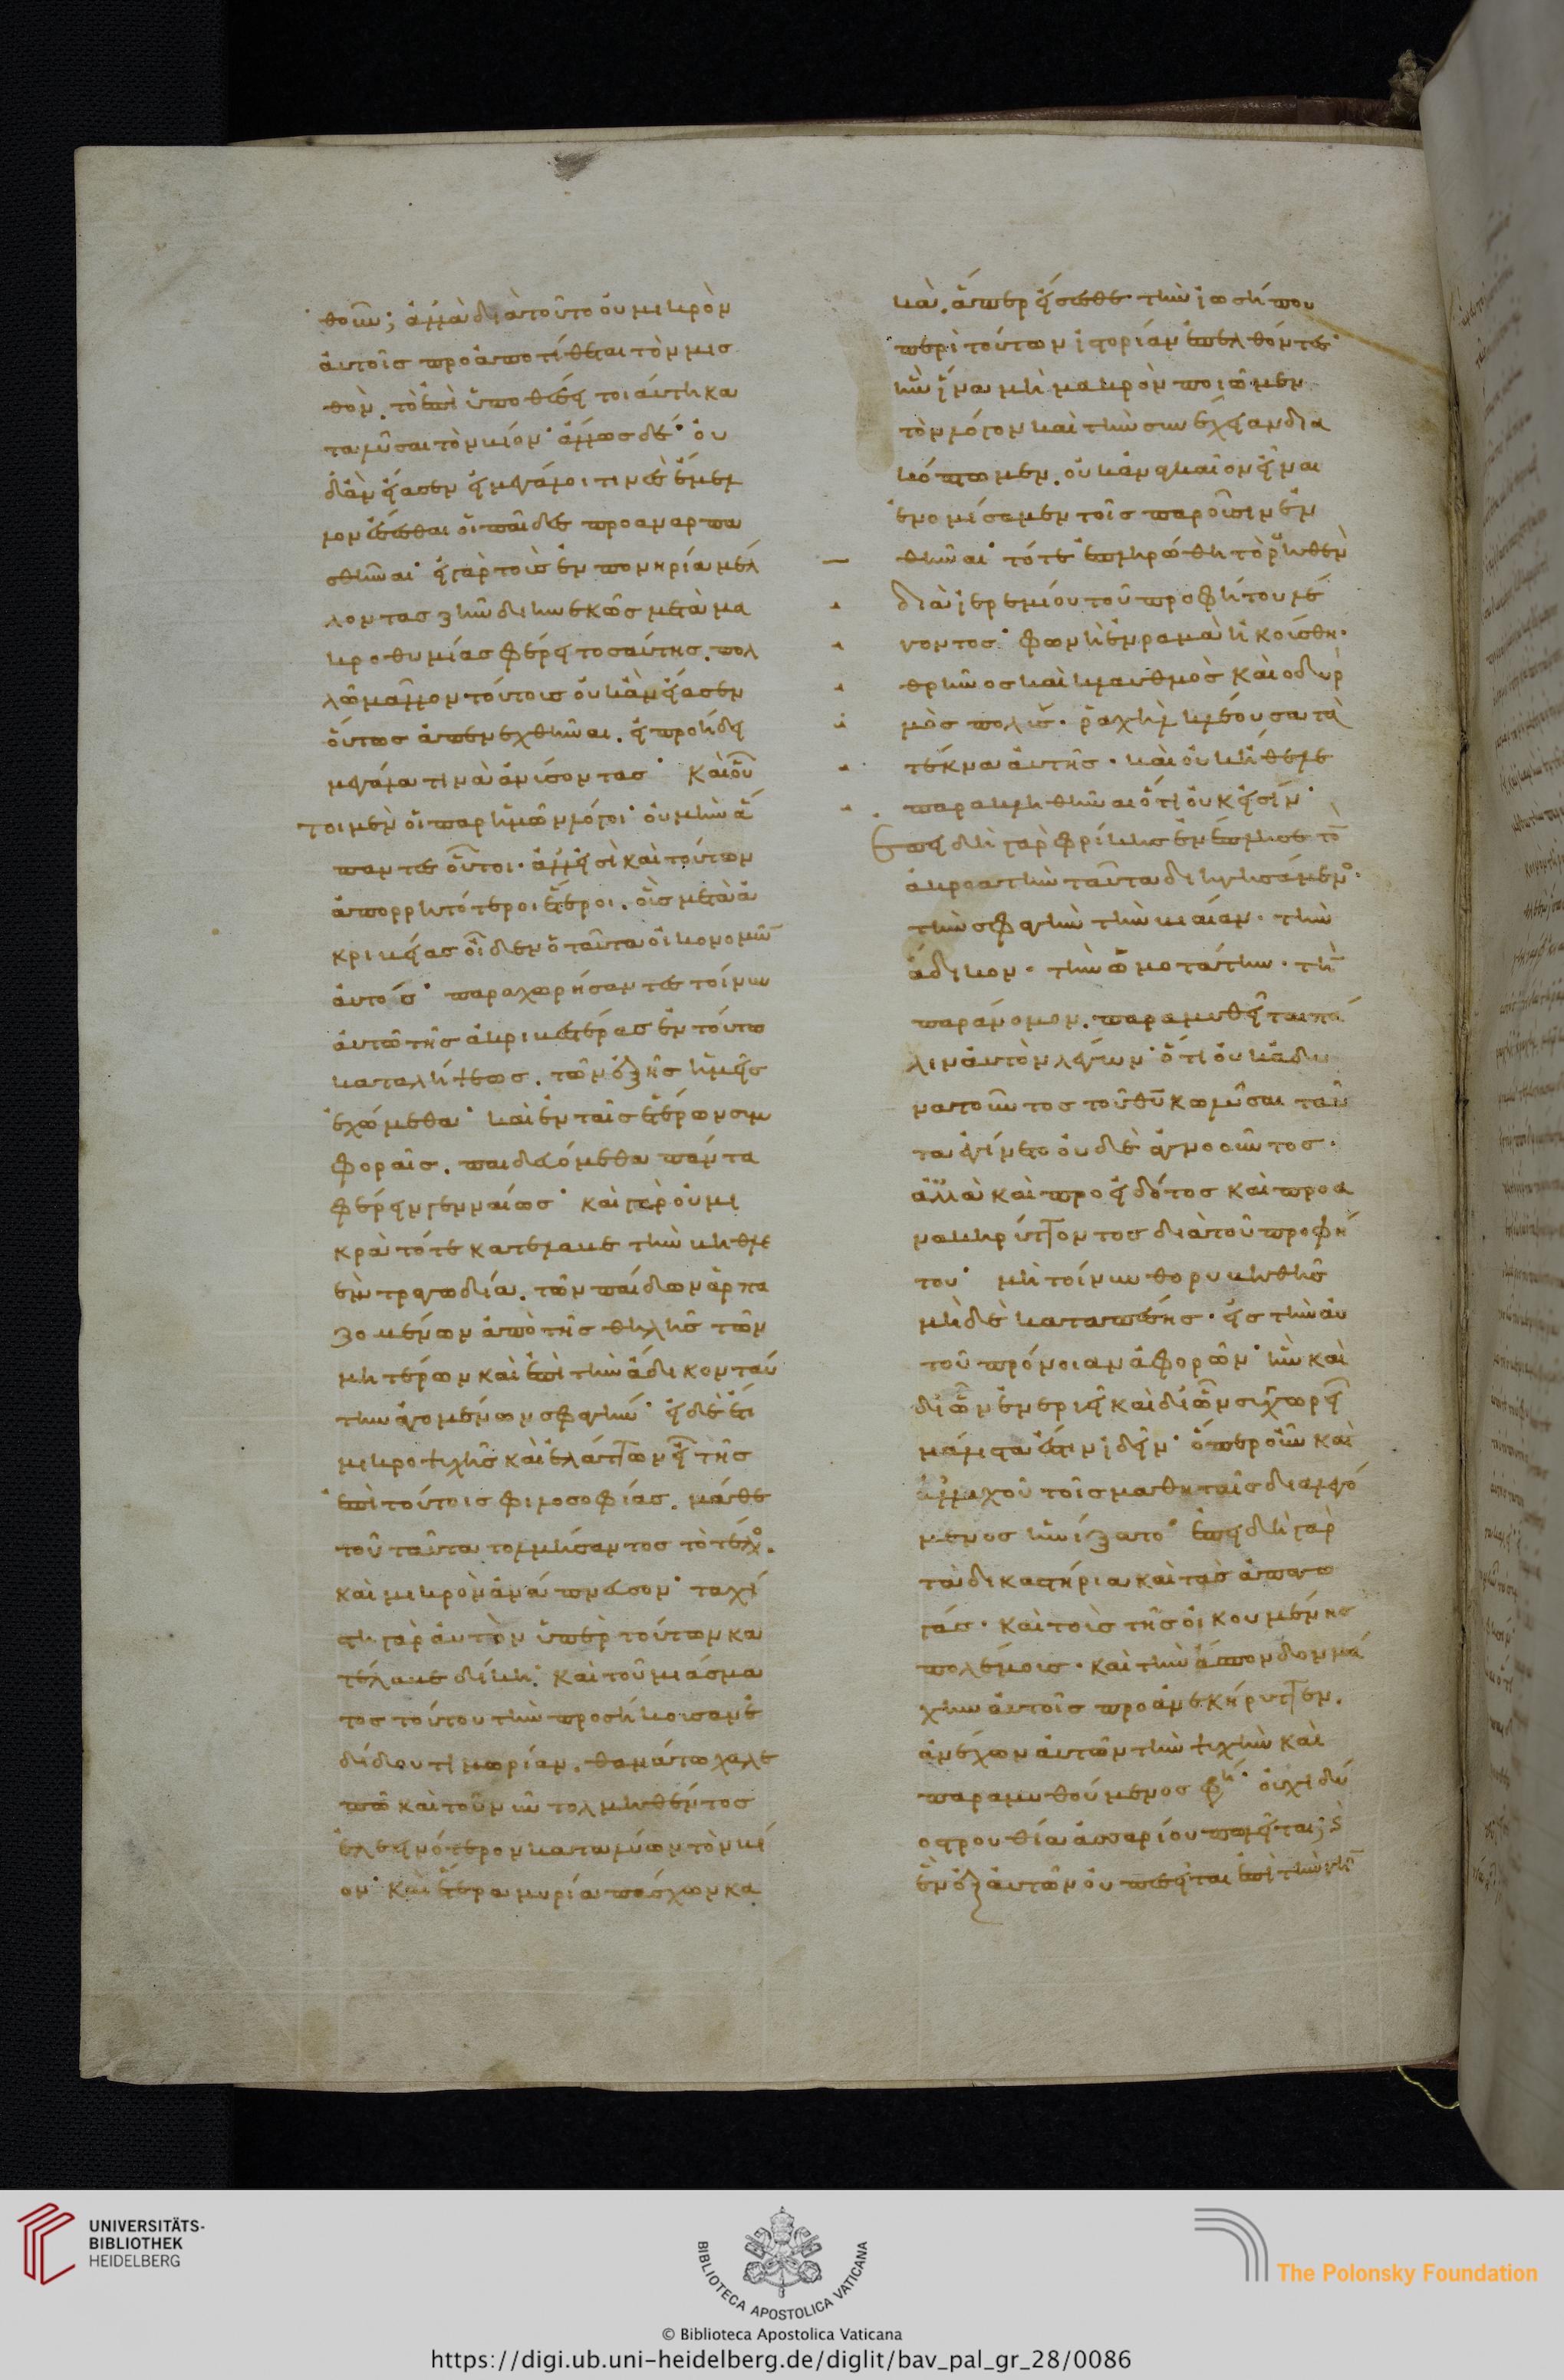 θοῦν; ἀλλὰ διὰ τοῦτο οὐ μικρὸν
αὐτοῖς προαποτίθεται τὸν μισ
θὸν. τὸ ἐπὶ ὑποθέσει τοιαύτη κα
ταλῦσαι τὸν βίον· ἄλλως δὲ· οὐ
δ' ἂν εἴασεν εἰ μεγάλοι τινὲς ἔμελ
λον ἔσεσθαι οἱ παῖδες προαναρπα
σθῆναι· εἰ γὰρ τοὺς ἐν πονηρία μέλ
λοντας ζῆν διηνεκῶς μετὰ μα
κροθυμίας φέρει τοσαύτης. πολ
λῶ μᾶλλον τούτοις οὐκ ἂν εἴασεν
οὕτως ἀπενεχθῆναι. εἰ προήδει
μεγάλα τινὰ ἀνύσοντας· Καὶ οὗ
τοι μὲν οἱ παρ' ἡμῶν λόγοι· οὐ μὴν ἅ
παντες οὗτοι. ἀλλ' εἰσὶ καὶ τούτων
ἀπορρητότεροι ἕτεροι. οὓς μετὰ ἀ
κριβείας οἶδεν ὁ ταῦτα οἰκονομῶν
αὐτός· παραχωρήσαντες τοίνυν
αὐτῶ τῆς ἀκριβεστέρας ἐν τούτω
καταλήψεως. τῶν ἑξῆς ἡμεῖς
ἐχώμεθα· καὶ ἐν ταῖς ἑτέρων συμ
φοραῖς. παιδευόμεθα πάντα
φέρειν γενναίως· καὶ γὰρ οὐ μι
κρὰ τότε κατέλαβε τὴν βηθλε
ὲμ τραγωδία. τῶν παίδων ἁρπα
ζομένων ἀπὸ τῆς θηλῆς τῶν
μητέρων καὶ ἐπὶ τὴν ἄδικον ταύ
την ἀγομένων σφαγήν· εἰ δὲ ἔτι
μικροψυχεῖς καὶ ἐλάττων εἶ τῆς
ἐπὶ τούτοις φιλοσοφίας. μάθε
τοῦ ταῦτα τολμήσαντος τὸ τέλος.
καὶ μικρὸν ἀνάπνευσον· ταχί
στη γὰρ αὐτὸν ὑπὲρ τούτων κα
τέλαβε δίκη· καὶ τοῦ μιάσμα
τος τούτου τὴν προσήκουσαν ἐ
δίδου τιμωρίαν. θανάτω χαλε
πῶ καὶ τοῦ νῦν τολμηθέντος
ἐλεεινότερον καταλύων τὸν βί
ον· καὶ ἕτερα μυρία πάσχων κα
κὰ. ἅπερ εἴσεσθε τὴν ἰωσήπου
περὶ τούτων ἱστορίαν ἐπελθόντες·
ἣν ἵνα μὴ μακρὸν ποιῶμεν
τὸν λόγον καὶ τὴν συνέχειαν δια
κόπτωμεν. οὐκ ἀναγκαῖον εἶναι
ἐνομίσαμεν τοῖς παροῦσιν ἐν
θῆναι· τότε ἐπληρώθη τὸ ῥηθὲν
διὰ ἱερεμίου τοῦ προφήτου λέ
γοντος· φωνὴ ἐν ραμὰ ἠκούσθη.
θρῆνος καὶ κλαυθμὸς καὶ οδυρ
μὸς πολύς. ῥαχὴλ κλέουσα τὰ
τέκνα αὐτῆς. καὶ οὐκ ἤθελε
παρακληθῆναι ὅτι οὐκ εἰσίν·
Ἐπειδὴ γὰρ φρίκης ἐνέπλησε τὸν
ἀκροατὴν ταῦτα διηγησάμενος.
τὴν σφαγὴν τὴν βιαίαν. τὴν
ἄδικον. τὴν ὠμοτάτην. τὴν
παράνομον. παραμυθεῖται πά
λιν αὐτὸν λέγων· ὅτι οὐκ ἀδυ
νατοῦντος τοῦ θυ κωλῦσαι ταῦ
τα ἐγίνετο οὐδὲ ἀγνοοῦντος.
ἀλλὰ καὶ προειδότος καὶ προα
νακηρύττοντος διὰ τοῦ προφή
του· μὴ τοίνυν θορυβηθῆς
μηδὲ καταπέσης. εἰς τὴν αὐ
τοῦ πρόνοιαν ἀφορῶν· ἣν καὶ
δι' ὧν ἐνεργεῖ καὶ δι' ὧν συγχωρεῖ
μάλιστα ἔστιν ἰδεῖν· ὅπερ οὖν καὶ
ἀλλαχοῦ τοῖς μαθηταῖς διαλεγό
μενος ἠνίξατο· ἐπειδὴ γὰρ
τὰ δικαστήρια καὶ τὰς ἀπαγω
γάς. καὶ τοὺς τῆς οἰκουμένης
πολέμους. καὶ τὴν ἄσπονδον μά
χην αὐτοῖς προανεκήρυττεν.
ἀνέχων αὐτῶν τὴν ψυχὴν καὶ
παραμυθούμενος φη· οὐχὶ δύ
ο στρουθία ἀσσαρίου πωλεῖται; ϗ
ἓν ἐξ αὐτῶν οὐ πεσεῖται ἐπὶ τὴν γῆν
UNIVERSITÄTS-
BIBLIOTHEK
HEIDELBERG
BIBLIOTECA APOSTOLICA VATICANA
The Polonsky Foundation
© Biblioteca Apostolica Vaticana
https://digi.ub.uni-heidelberg.de/diglit/bav_pal_gr_28/0086